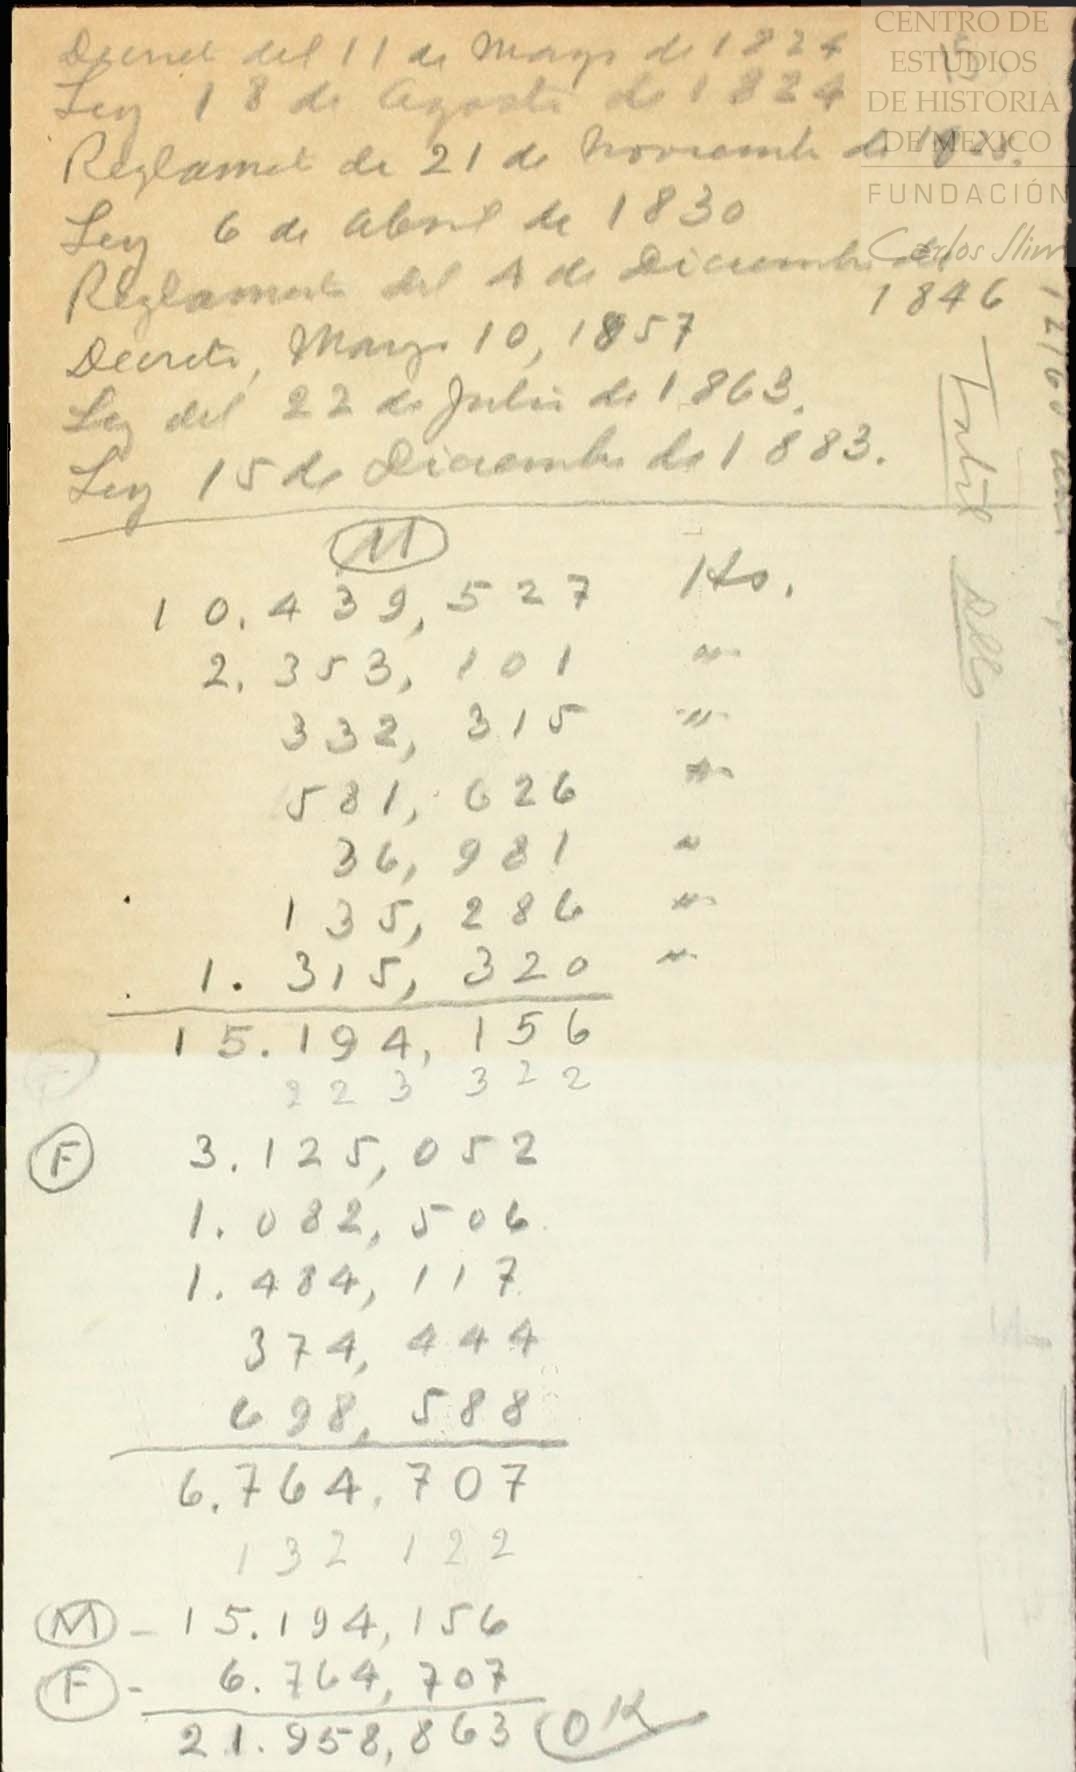 CENTRO DE
ESTUDIOS
DE HISTORIA
DE MÉXICO
FUNDACIÓN
Carlos Slim
Decret del 11 de Mayo de 1824
Ley 18 de Agosto de 1824
Reglamet de 21 de Noviembre de
Ley 6 de Abril de 1830
Reglament del 4 de Diciembre de
1846
Decreto, Marzo 10, 1857
Ley del 22 de Julio de 1863.
Ley 15 de Diciembre de 1883.
M
10.439,527 Hs.
2.353,101 "
332,315 "
581,626 "
36,981 "
135,286 "
1.315,320 "
15.194,156
223 322
F 3.125,052
1.082,506
1.484,117
374,444
698,588
6.764,707
132 122
M - 15.194,156
F - 6.764,707
21.958,863 OK